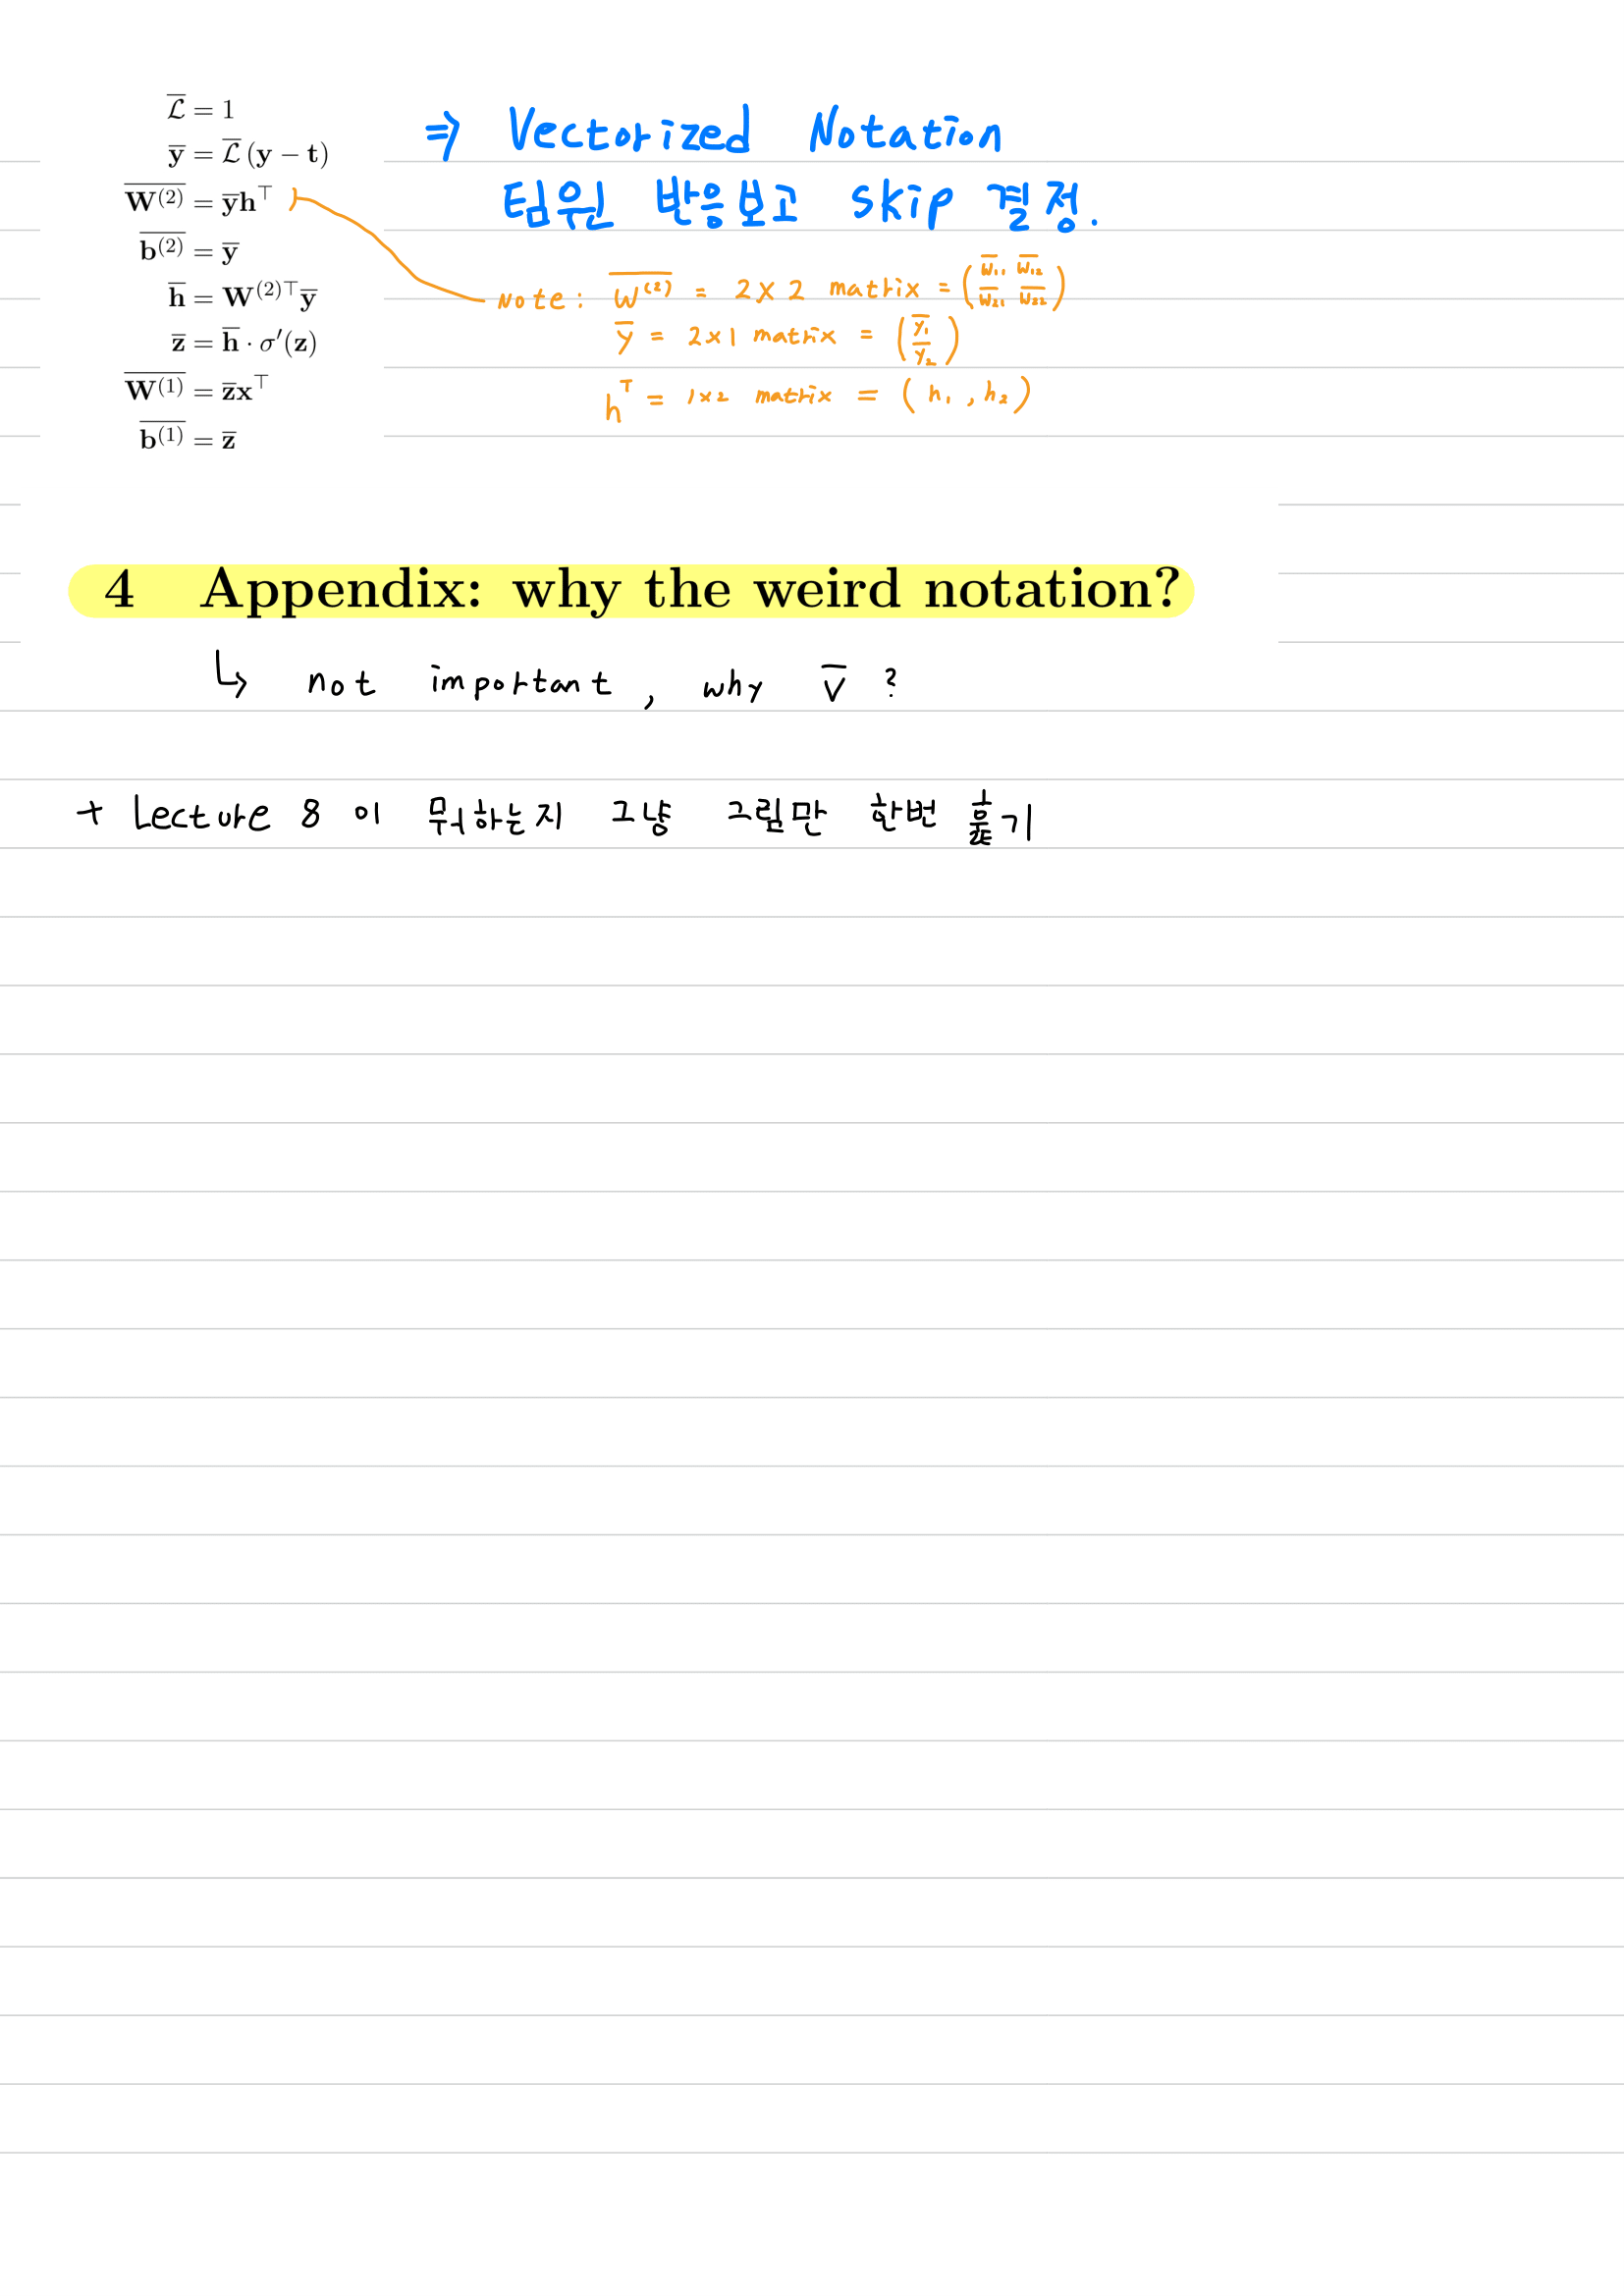 $\overline{\mathcal{L}} = 1$
$\overline{\mathbf{y}} = \overline{\mathcal{L}}\,(\mathbf{y} - \mathbf{t})$
$\overline{\mathbf{W}^{(2)}} = \overline{\mathbf{y}}\mathbf{h}^\top$
$\overline{\mathbf{b}^{(2)}} = \overline{\mathbf{y}}$
$\overline{\mathbf{h}} = \mathbf{W}^{(2)\top}\overline{\mathbf{y}}$
$\overline{\mathbf{z}} = \overline{\mathbf{h}} \cdot \sigma'(\mathbf{z})$
$\overline{\mathbf{W}^{(1)}} = \overline{\mathbf{z}}\mathbf{x}^\top$
$\overline{\mathbf{b}^{(1)}} = \overline{\mathbf{z}}$
⇒ Vectorized Notation
팀원 반응보고 skip 결정.
Note: $\overline{W^{(2)}}$ = 2×2 matrix = $\begin{pmatrix} \overline{w_{11}} & \overline{w_{12}} \\ \overline{w_{21}} & \overline{w_{22}} \end{pmatrix}$
$\overline{y}$ = 2×1 matrix = $\begin{pmatrix} \overline{y_1} \\ \overline{y_2} \end{pmatrix}$
$h^T$ = 1×2 matrix = $(h_1, h_2)$
4 Appendix: why the weird notation?
↳ not important, why $\overline{v}$ ?
+ Lecture 8 이 뭐하는지 그냥 그림만 한번 훑기